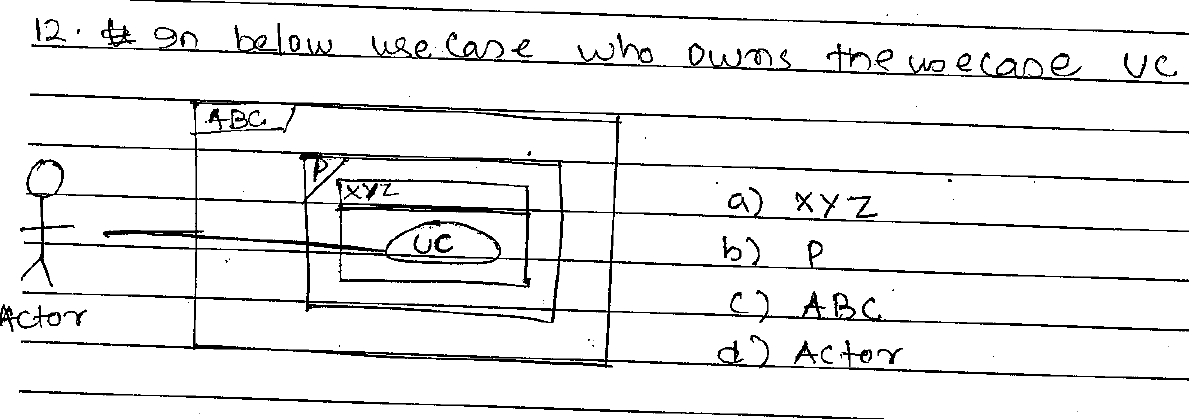 12. In below usecase who owns the usecase UC
ABC
P
XYZ
UC
Actor
a) XYZ
b) P
c) ABC
d) Actor